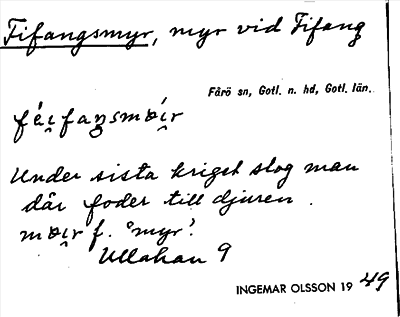 Fifangsmyr, myr vid Fifang
Fårö sn, Gotl. n. hd, Gotl. län.
féi̯faŋsmɒi̯r
Under sista kriget slog man
där foder till djuren.
mɒi̯r f. 'myr'.
Ullahau 9
INGEMAR OLSSON 1949